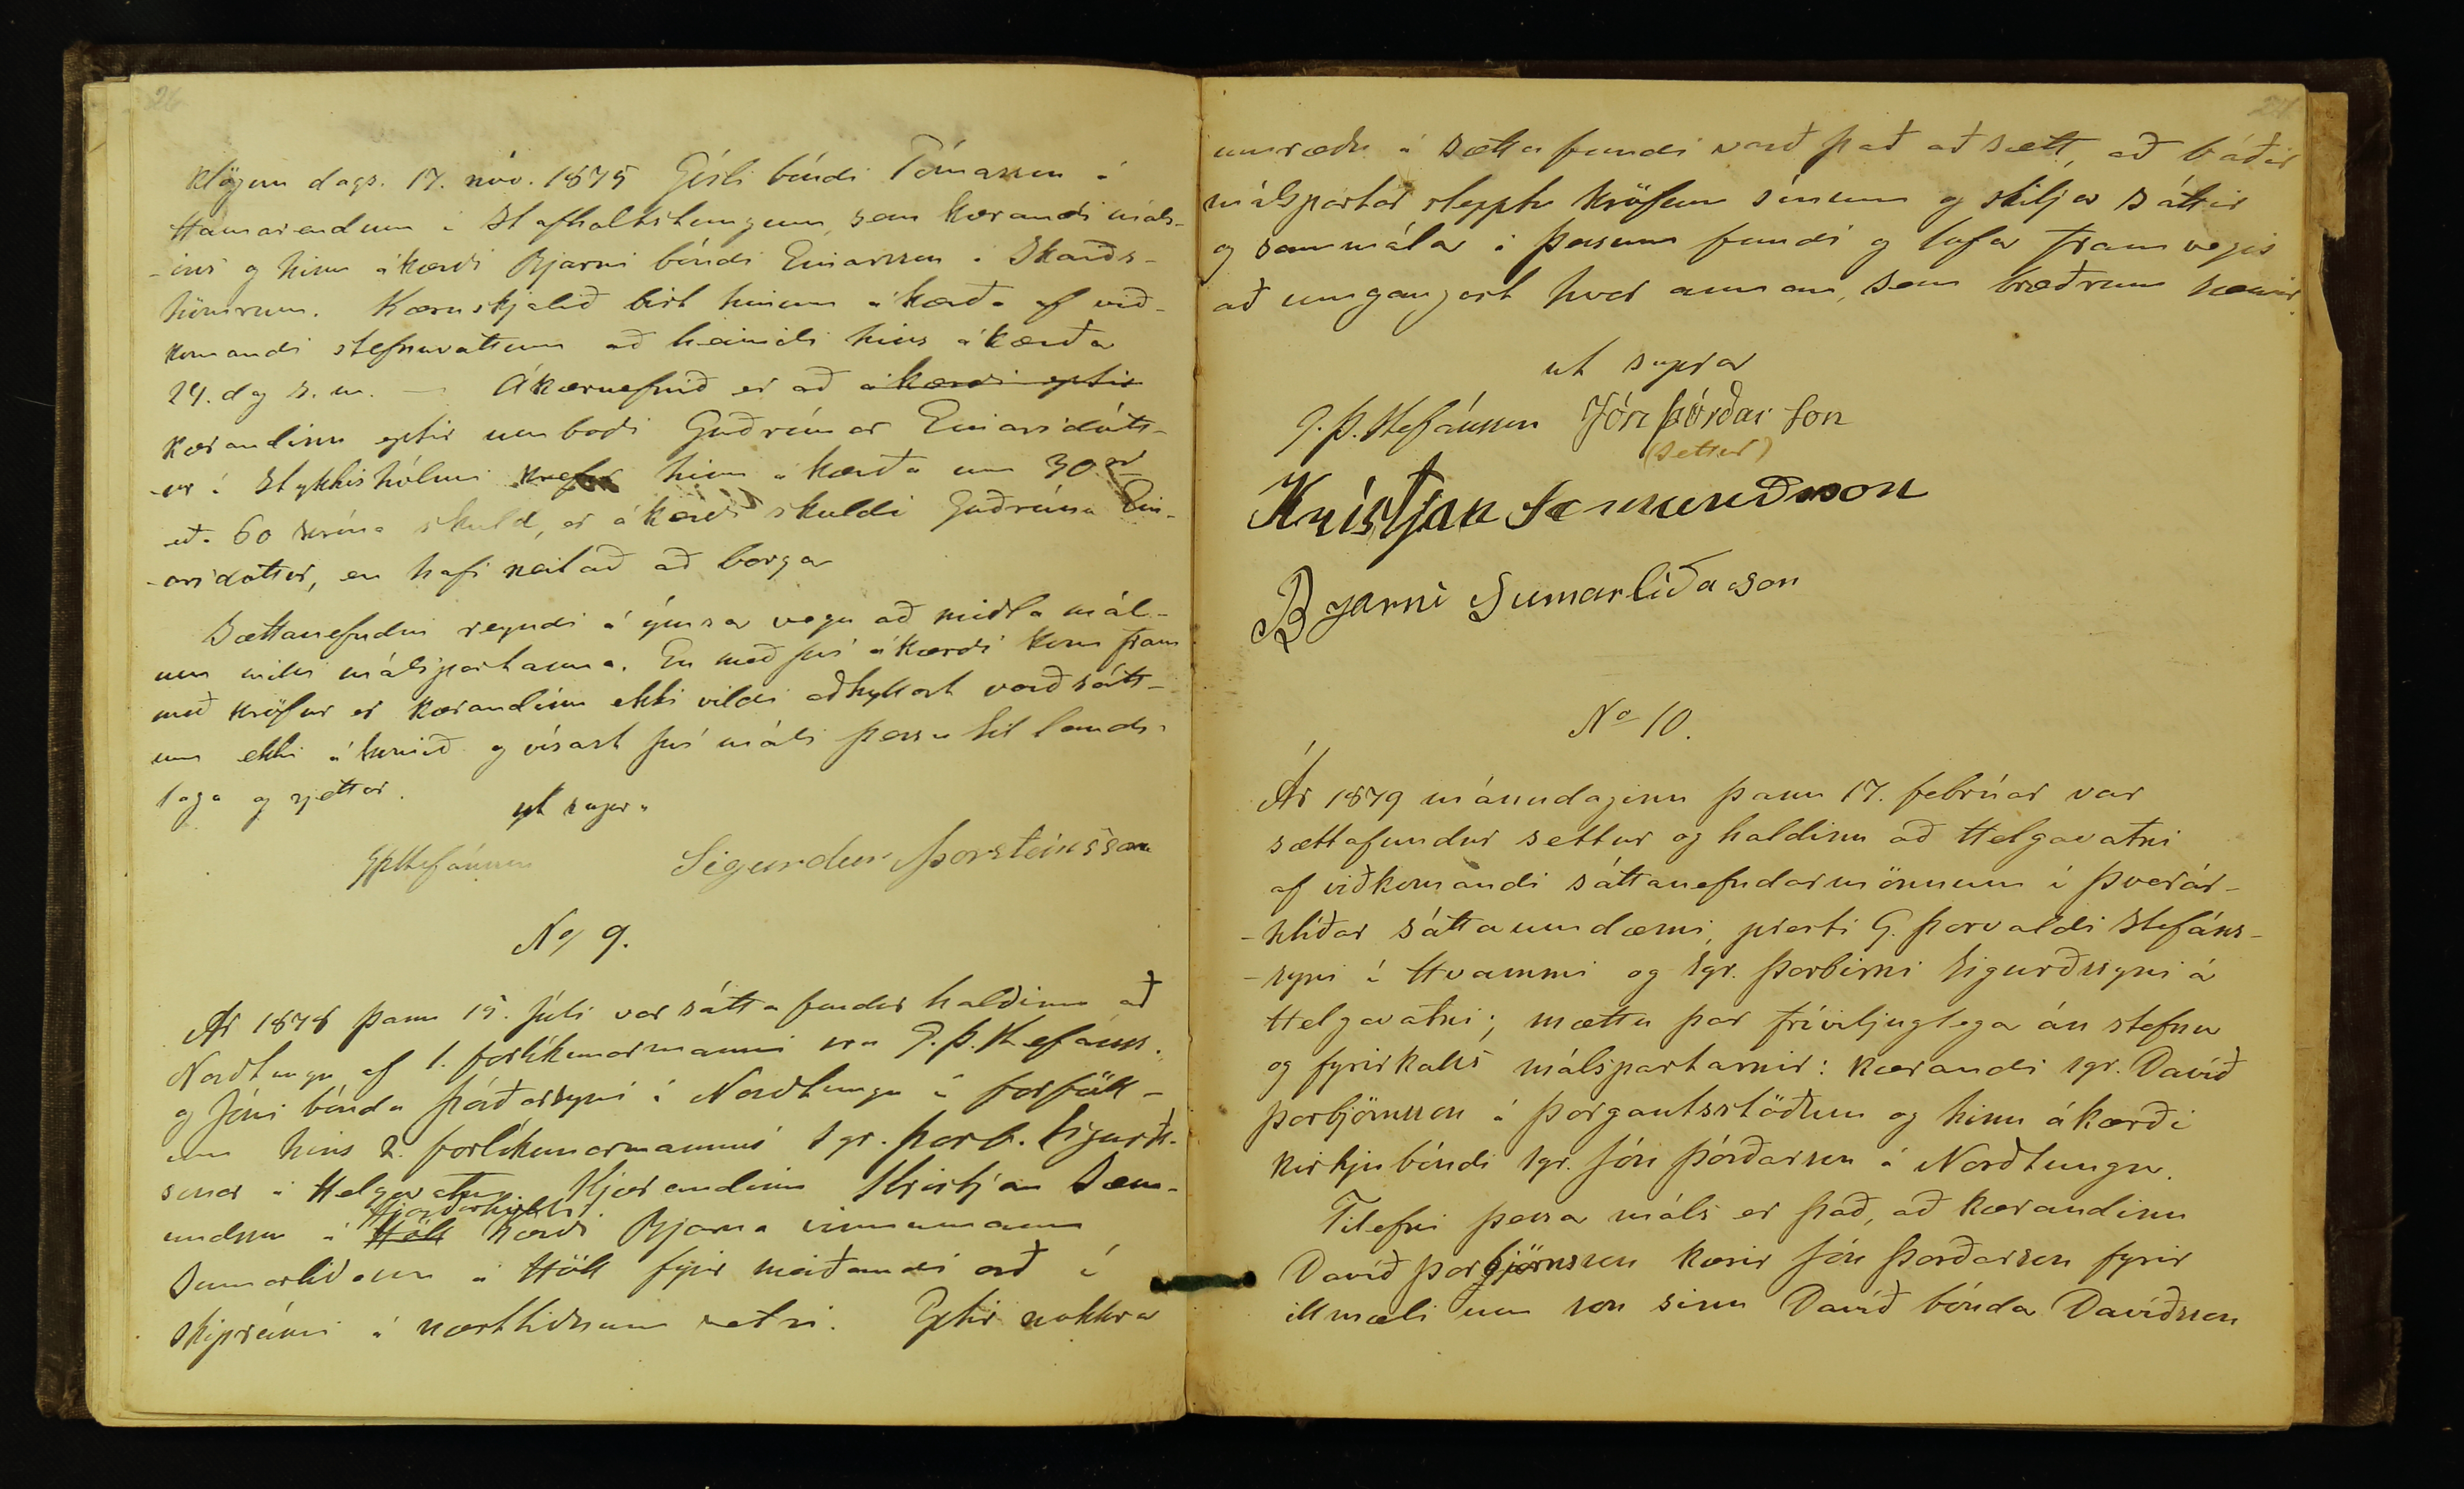 26
klögun dags. 17. nóv. 1875 Gísli bóndi Tómasson á
Hamarendum í Stafholtstungum, sem kærandi máls-
-ins og hinn ákærði Bjarni bóndi Einarsson á Skarðs-
hömrum. Kæruskjalið birt hinum ákærða af við-
komandi stefnuvottum að heimili hins ákærða
24. dag s. m. — Ákæruefnið er að ákærði eptir
kærandinn eptir umboði Guðrúnar Einarsdótt-
-ur í Stykkishólmi krefur hinn ákærða um 30 rd
eða 60 króna skuld, er ákærði skuldi Guðrúnu Ein-
-arsdóttur, en hafi neitað að borga
Sættanefndin reyndi á ýmsa vegu að miðla mál-
um milli málspartanna. En með því ákærði kom fram
með kröfur er kærandinn ekki vildi aðhyllast varð sátt-
um ekki á komið og vísast því máli þessu til lands-
laga og rjettar.
ut supra
GÞStefánsson Sigurdur Þorsteinsson
No 9.
Ár 1878 þann 15. júli var sáttafundur haldinn að
Norðtungu af 1. forlíkunarmanni sra G. Þ. Stefánss.
og Jóni bónda Þórðarsyni í Norðtungu í forföll-
um hins 2. forlíkunarmanns sgr. Þorb. Sigurðs-
sonar á Helgavatni. Kjærandinn Kristján Sæm-
Hjarðarholti
undsson á Höll kærði Bjarna vinnumann
Sumarliðason á Höll fyrir meiðandi orð í
skiprúmi á næstliðnum vetri. Eptir nokkra
umræðu á sættafundi varð það að sætt, að báðir
málspartar slepptu kröfum sínum og skiljа sáttir
og sammála á þessum fundi og lofa framvegis
að umgangast hvor annan, sem bræðrum hæfir
ut supra
G. Þ. Stefánsson Jón Þórðarson
(settur)
Kristján Sæmundsson
Bjarni Sumarliðason
No 10.
Ár 1879 mánudaginn þann 17. febrúar var
sættafundur settur og haldinn að Helgavatni
af viðkomandi sáttanefndarmönnum í Þverár-
-hlíðar sáttaumdæmi, presti G. Þorvaldi Stefáns-
-syni í Hvammi og sgr. Þorbirni Sigurðssyni á
Helgavatni; mættu þar fríviljuglega án stefnu
og fyrirkalls málspartarnir: kærandi sgr. Davíð
Þorbjörnsson á Þorgautsstöðum og hinn ákærði
kirkjubóndi sgr. Jón Þórðarson á Norðtungu.
Tilefni þessa máls er það, að kærandinn
Davíð Þorbjörnsson kærir Jón Þórðarson fyrir
illmæli um son sinn Davíð bónda Davíðsson